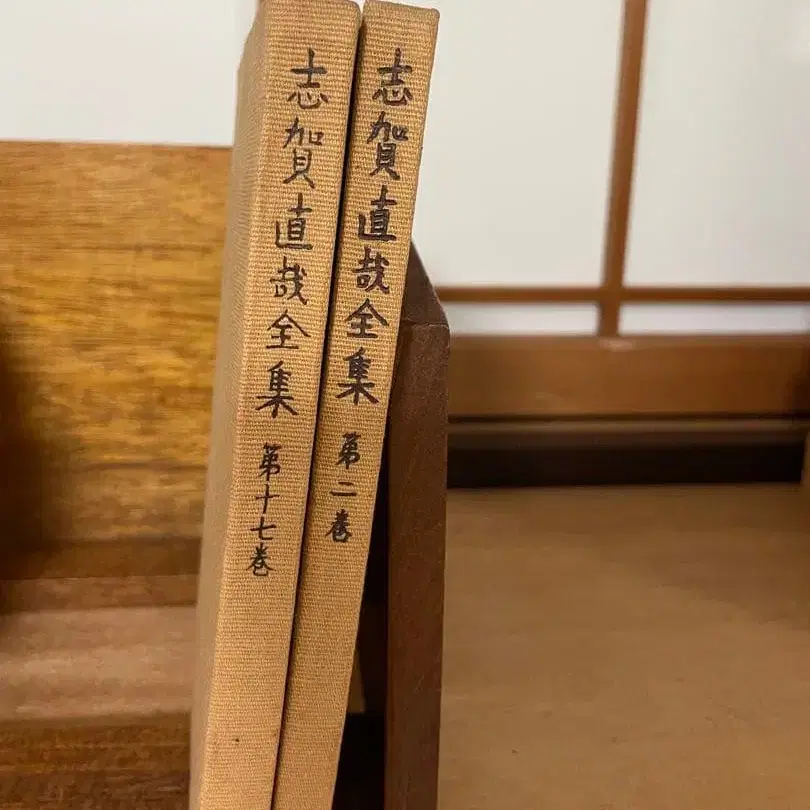 志賀直哉全集 第二巻
志賀直哉全集 第十七巻